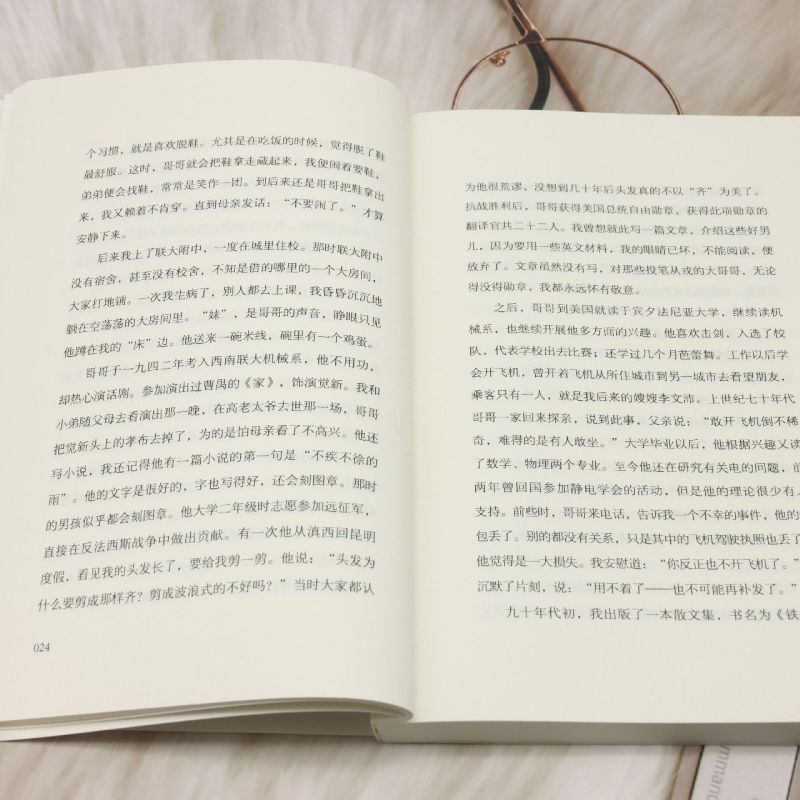 个习惯，就是喜欢脱鞋。尤其是在吃饭的时候，觉得脱了鞋
最舒服。这时，哥哥就会把鞋拿走藏起来，我便闹着要鞋，
弟弟便会找鞋，常常是笑作一团。到后来还是哥哥把鞋拿出
来，我又赖着不肯穿。直到母亲发话：“不要闹了。”才算
安静下来。
后来我上了联大附中，一度在城里住校。那时联大附中
没有宿舍，甚至没有校舍，不知是借的哪里的一个大房间，
大家打地铺。一次我生病了，别人都去上课，我昏昏沉沉地
躺在空荡荡的大房间里。“妹”，是哥哥的声音，睁眼只见
他蹲在我的“床”边。他送来一碗米线，碗里有一个鸡蛋。
哥哥于一九四二年考入西南联大机械系，他不用功，
却热心演话剧。参加演出过曹禺的《家》，饰演觉新。我和
小弟随父母去看演出那一晚，在高老太爷去世那一场，哥哥
把觉新头上的孝布去掉了，为的是怕母亲看了不高兴。他还
写小说，我还记得他有一篇小说的第一句是“不疾不徐的
雨”。他的文字是很好的，字也写得好，还会刻图章。那时
的男孩似乎都会刻图章。他大学二年级时志愿参加远征军，
直接在反法西斯战争中做出贡献。有一次他从滇西回昆明
度假，看见我的头发长了，要给我剪一剪。他说：“头发为
什么要剪成那样齐？剪成波浪式的不好吗？”当时大家都认
024
为他很荒谬，没想到几十年后头发真的不以“齐”为美了。
抗战胜利后，哥哥获得美国总统自由勋章，获得此项勋章的
翻译官共二十二人。我曾想就此写一篇文章，介绍这些好男
儿，因为要用一些英文材料，我的眼睛已坏，不能阅读，便
放弃了。文章虽然没有写，对那些投笔从戎的大哥哥，无论
得没得勋章，我都永远怀有敬意。
之后，哥哥到美国就读于宾夕法尼亚大学，继续读机
械系，也继续开展他多方面的兴趣。他喜欢击剑，入选了校
队，代表学校出去比赛；还学过几个月芭蕾舞。工作以后学
会开飞机，曾开着飞机从所住城市到另一城市去看望朋友，
乘客只有一人，就是我后来的嫂嫂李文沛。上世纪七十年代
哥哥一家回来探亲，说到此事，父亲说：“敢开飞机倒不稀
奇，难得的是有人敢坐。”大学毕业以后，他根据兴趣又读
了数学、物理两个专业。至今他还在研究有关电的问题，前
两年曾回国参加静电学会的活动，但是他的理论很少有人
支持。前些时，哥哥来电话，告诉我一个不幸的事件，他的
包丢了。别的都没有关系，只是其中的飞机驾驶执照也丢了
他觉得是一大损失。我安慰道：“你反正也不开飞机了。”
沉默了片刻，说：“用不着了——也不可能再补发了。”
九十年代初，我出版了一本散文集，书名为《铁